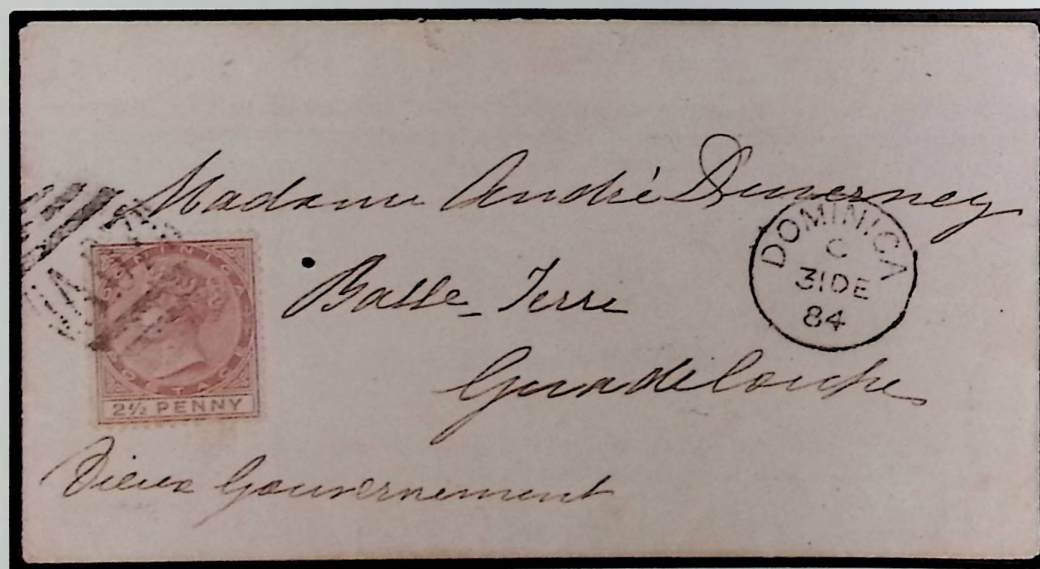 Madame André Duverney
Basse-Terre
Guadeloupe
Vieux Gouvernement
DOMINICA
C
31 DE
84
DOMINICA
POSTAGE
2½ PENNY
A07